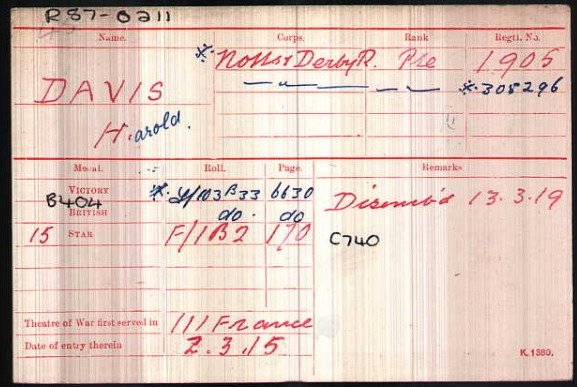 R87-0211
Name. Corps. Rank Regtl. No.
* Notts & Derby R. Pte 1905
DAVIS — " — — — * 305296
Harold.
Medal. Roll. Page. Remarks
VICTORY * 6630 Disemb'd 13.3.19
B404
BRITISH do. do
15 STAR F/1B2 170 C740
Theatre of War first served in 111 France
Date of entry therein 2.3.15
K. 1380.